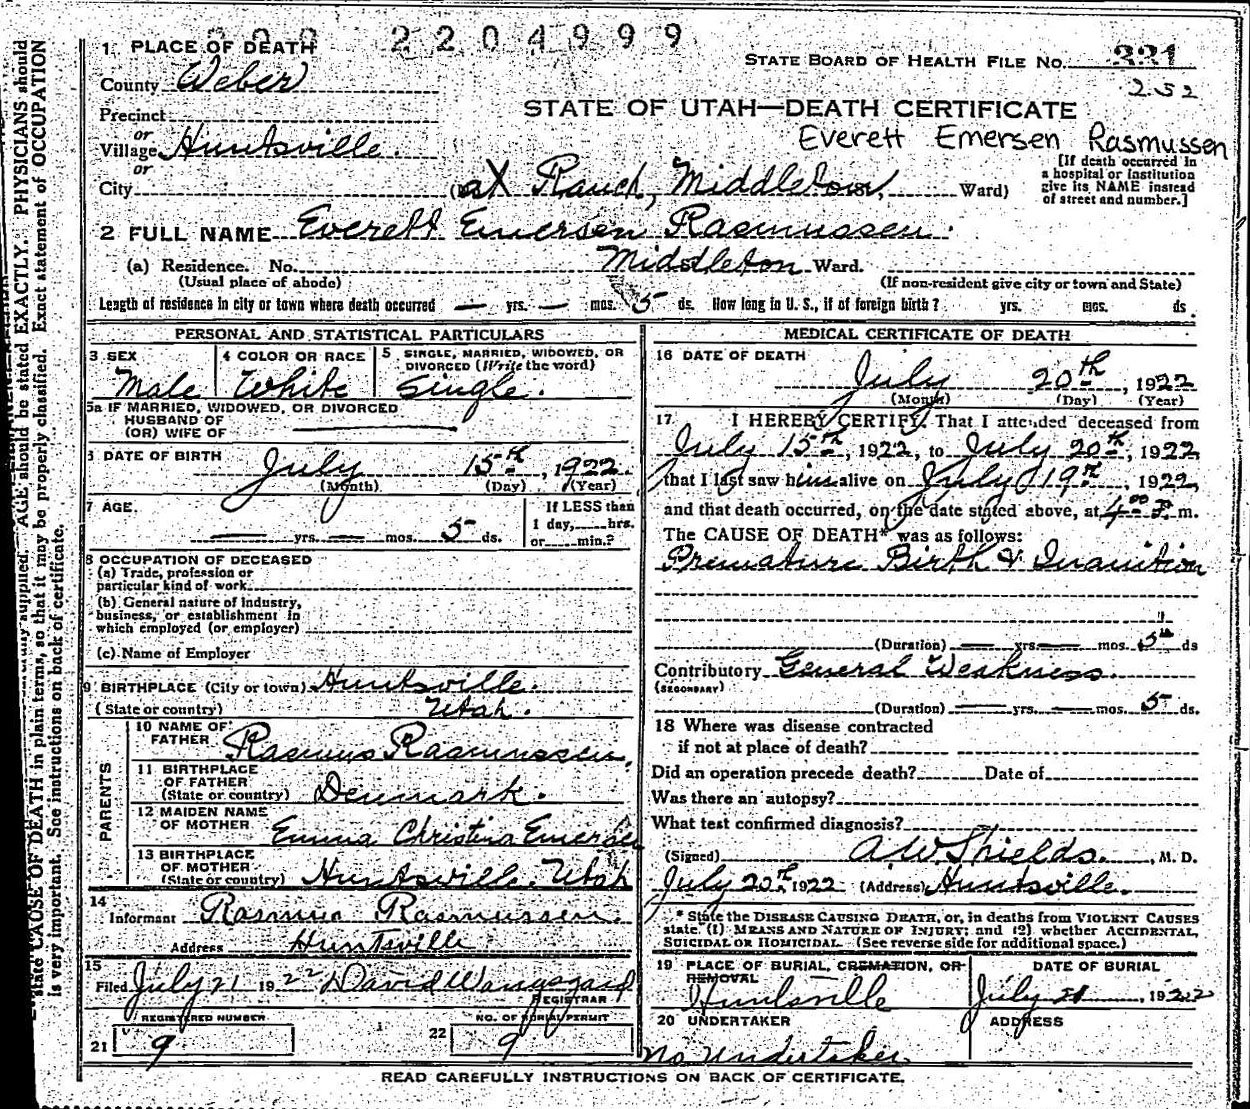 2204999
1 PLACE OF DEATH
STATE BOARD OF HEALTH FILE No. 331
County Weber
232
Precinct
STATE OF UTAH—DEATH CERTIFICATE
or
Everett Emersen Rasmussen
Village Huntsville.
or
[If death occurred in
a hospital or institution
give its NAME instead
of street and number.]
City at Ranch, Middleton, Ward)
2 FULL NAME Everett Emersen Rasmussen.
(a) Residence. No. Middleton Ward.
(Usual place of abode) (If non-resident give city or town and State)
Length of residence in city or town where death occurred — yrs. — mos. 5 ds. How long in U. S., if of foreign birth? yrs. mos. ds.
PERSONAL AND STATISTICAL PARTICULARS
3 SEX 4 COLOR OR RACE 5 SINGLE, MARRIED, WIDOWED, OR
DIVORCED (Write the word)
Male White Single.
5a IF MARRIED, WIDOWED, OR DIVORCED
HUSBAND OF
(OR) WIFE OF
6 DATE OF BIRTH
July 15th, 1922.
(Month) (Day) (Year)
7 AGE.
If LESS than
1 day, hrs.
or min.?
— yrs. — mos. 5 ds.
8 OCCUPATION OF DECEASED
(a) Trade, profession or
particular kind of work
(b) General nature of Industry,
business, or establishment in
which employed (or employer)
(c) Name of Employer
9 BIRTHPLACE (City or town) Huntsville.
(State or country) Utah.
PARENTS
10 NAME OF
FATHER Rasmus Rasmussen.
11 BIRTHPLACE
OF FATHER
(State or country) Denmark.
12 MAIDEN NAME
OF MOTHER Emma Christina Emersen
13 BIRTHPLACE
OF MOTHER
(State or country) Huntsville. Utah
14
Informant Rasmus Rasmussen.
Address Huntsville
15
Filed July 21 1922 David Wangsgard
REGISTRAR
REGISTERED NUMBER NO. OF BURIAL PERMIT
21 9 22 9
MEDICAL CERTIFICATE OF DEATH
16 DATE OF DEATH
July 20th, 1922
(Month) (Day) (Year)
17 I HEREBY CERTIFY, That I attended deceased from
July 15th, 1922, to July 20th, 1922,
that I last saw him alive on July 19th, 1922,
and that death occurred, on the date stated above, at 4:00 P. m.
The CAUSE OF DEATH* was as follows:
Premature Birth & Inanition
(Duration) — yrs — mos. 5 ds
Contributory General Weakness.
(SECONDARY)
(Duration) — yrs. — mos. 5 ds.
18 Where was disease contracted
if not at place of death?
Did an operation precede death? Date of
Was there an autopsy?
What test confirmed diagnosis?
(Signed) AW Shields. , M. D.
July 20th 1922 (Address) Huntsville.
* State the DISEASE CAUSING DEATH, or, in deaths from VIOLENT CAUSES
state (1) MEANS AND NATURE OF INJURY; and (2) whether ACCIDENTAL,
SUICIDAL OR HOMICIDAL. (See reverse side for additional space.)
19 PLACE OF BURIAL, CREMATION, OR
REMOVAL
DATE OF BURIAL
Huntsville July 21, 1922
20 UNDERTAKER ADDRESS
No undertaker.
READ CAREFULLY INSTRUCTIONS ON BACK OF CERTIFICATE.
supplied. AGE should be stated EXACTLY. PHYSICIANS should
state CAUSE OF DEATH in plain terms, so that it may be properly classified. Exact statement of OCCUPATION
is very important. See instructions on back of certificate.